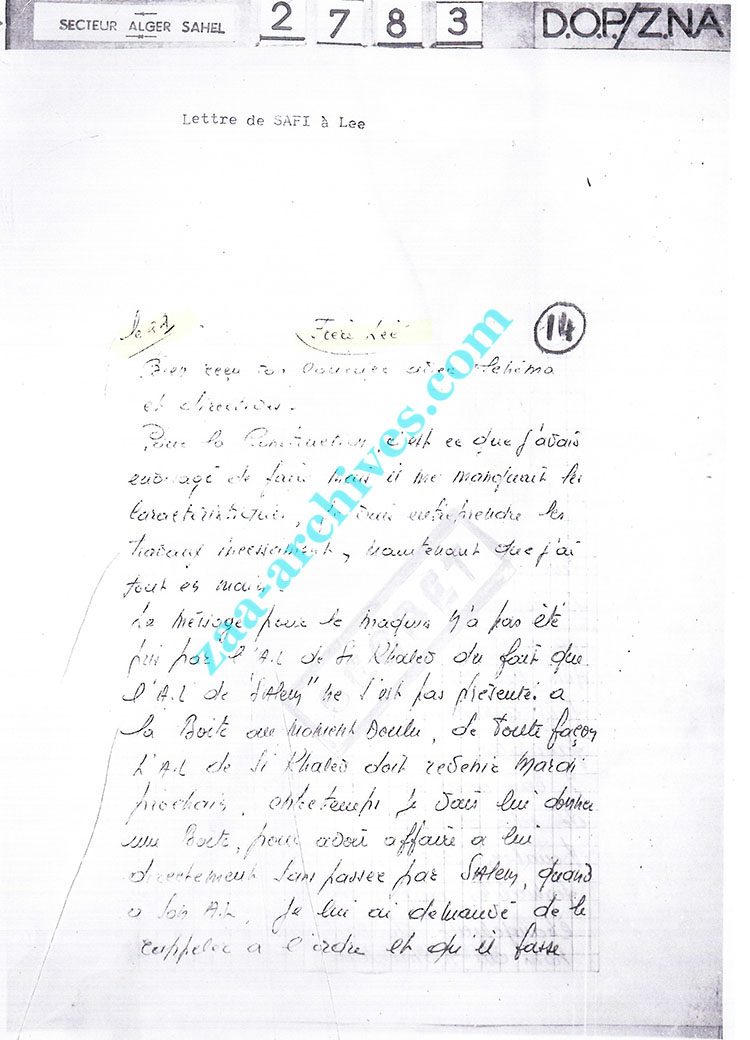 SECTEUR ALGER SAHEL 2783 D.O.P./Z.N.A
Lettre de SAFI à Lee
14
le 22 Frère Lee
Bien reçu ton courrier avec schéma
et directives.
Pour la Construction, c'est ce que j'avais
envisagé de faire mais il me manquait les
Caractéristiques, je vais entreprendre les
travaux incessament, maintenant que j'ai
tout en main.
Le Méssage pour le maquis n'a pas été
pris par l'A.L de Si Khaled du fait que
l'A.L de "SALem" ne s'est pas présenté a
la Boite au Moment Voulu, de toute façon
L'A.L de Si Khaled doit revenir Mardi
prochain, entretemps je vais lui donner
une Boite, pour avoir affaire a lui
directement sans passer par SALem, quand
a son A.L, Je lui ai demandé de le
rappeler a l'ordre et qu'il fasse
SECRET
zaa-archives.com